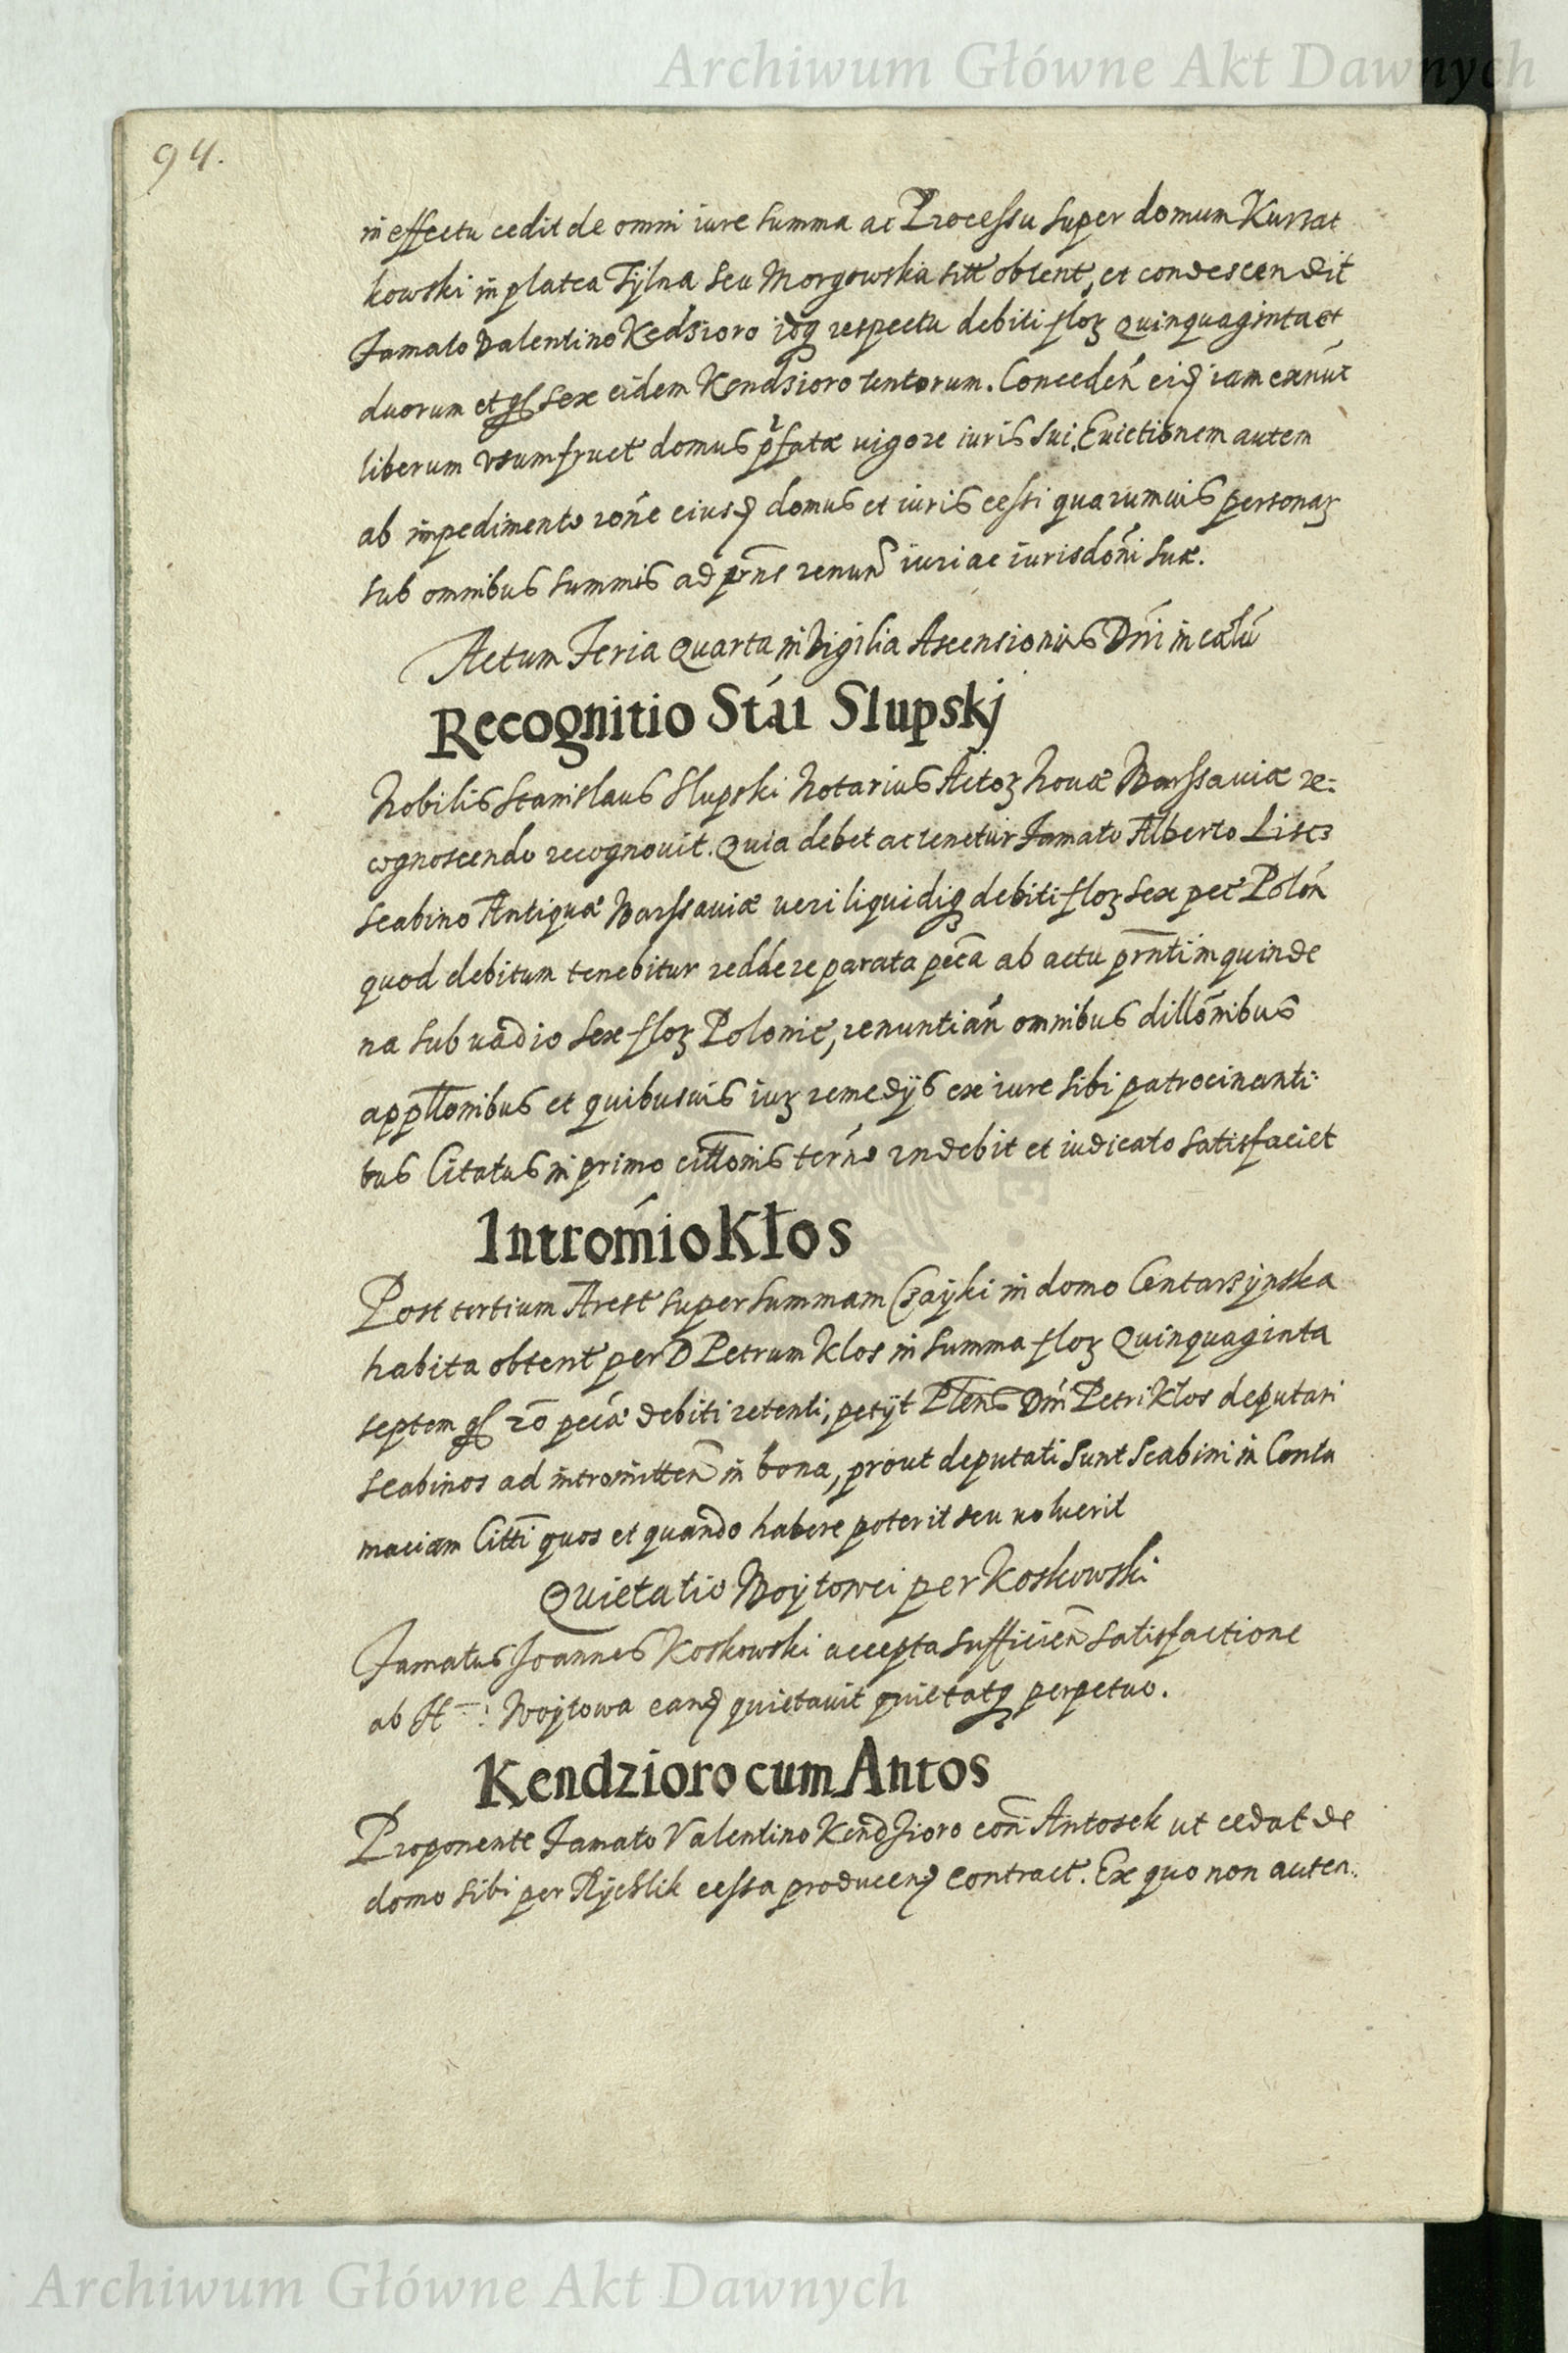 Archiwum Główne Akt Dawnych
94.
in effectu cedit de omni iure summa ac Processu super domum Kurzat
kowski in platea Tylna seu Morgowska sitt obtent, et condescendit
Famato Valentino Kedzioro idq respectu debiti floꝝ quinquaginta et
duorum et gſ sex eidem Kendzioro tentorum. Conceden eid iam exnuc
liberum vsumfruct domus pfatæ uigore iuris sui. Euictionem autem
ab impedimento rone eiusd domus et iuris cessi quarumuis personaꝝ
sub omnibus summis ad prns renun iuri ac iurisdoni suæ.
Actum Feria Quarta in Vigilia Ascensionis Dni in cælu
Recognitio Stai Slupskj
Nobilis Stanislaus Slupski Notarius Actoꝝ Nouæ Warssauiæ re:
cognoscendo recognouit. Quia debet ac tenetur Famato Alberto Lisc
Scabino Antiquæ Warssauiæ ueri liquidiq debiti floꝝ sex pec Polon
quod debitum tenebitur reddere parata peca ab actu prnti in quinde
na sub uadio sex floꝝ Polonic, renuntian omnibus dillonibus
appllonibus et quibusuis iuꝝ remedys ex iure sibi patrocinanti:
bus Citatus in primo cittonis termo indebit et iudicato satisfaciet
Intromio Kłos
Post tertium Arest super summam Czayki in domo Centarzynska
habita obtent per D Petrum Klos in summa floꝝ Quinquaginta
septem gſ 20 peca debiti retenti, petyt Plens Dni Petri Kłos deputari
scabinos ad intromitten in bona, prout deputati sunt Scabini in Contu
maciam Citti quos et quando habere poterit seu uoluerit
Quietatio Woytowei per Koskowski
Famatus Joannes Koskowski accepta sufficien satisfactione
ab H : Woytowa eand quietauit quietatq perpetuo.
Kendzioro cum Antos
Proponente Famato Valentino Kendzioro con Antosek ut cedat de
domo sibi per Rychlik cessa producend Contract. Ex quo non auten:
Archiwum Główne Akt Dawnych